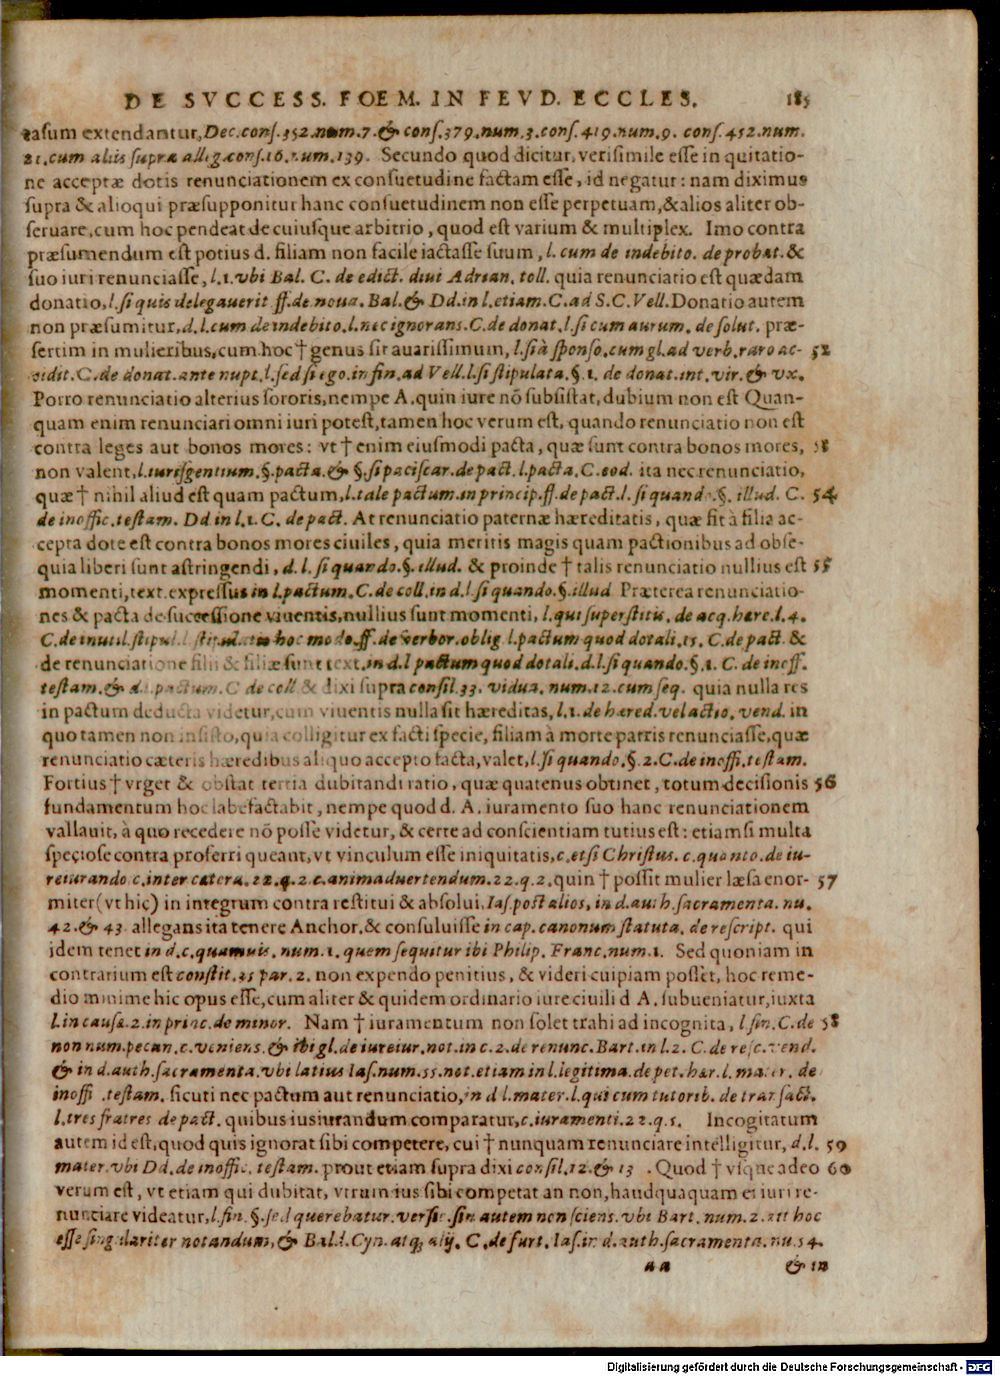 DE SVCCESS. FOEM. IN FEVD. ECCLES. 185
casum extendantur, Dec. cons. 352. num. 7. & cons. 379. num. 3. cons. 419. num. 9. cons. 452. num.
21. cum aliis supra alleg. cons. 16. num. 139. Secundo quod dicitur, verisimile esse in quitatio-
ne acceptæ dotis renunciationem ex consuetudine factam esse, id negatur: nam diximus
supra & alioqui præsupponitur hanc consuetudinem non esse perpetuam, & alios aliter ob-
seruare, cum hoc pendeat de cuiusque arbitrio, quod est varium & multiplex. Imo contra
præsumendum est potius d. filiam non facile iactasse suum, l. cum de indebito. de probat. &
suo iuri renunciasse, l. 1. vbi Bal. C. de edict. diui Adrian. toll. quia renunciatio est quædam
donatio, l. si quis delegauerit ff. de noua. Bal. & Dd. in l. etiam. C. ad S. C. Vell. Donatio autem
non præsumitur, d. l. cum de indebito. l. nec ignorans. C. de donat. l. si cum aurum. de solut. præ-
sertim in mulieribus, cum hoc † genus sit auarissimum, l. si à sponso. cum gl. ad verb. raro ac- 52
cidit. C. de donat. ante nupt. l. sed si ego. in fin. ad Vell. l. si stipulata. §. 1. de donat. int. vir. & vx.
Porro renunciatio alterius sororis, nempe A. quin iure nō subsistat, dubium non est Quan-
quam enim renunciari omni iuri potest, tamen hoc verum est, quando renunciatio non est
contra leges aut bonos mores: vt † enim eiusmodi pacta, quæ sunt contra bonos mores, 58
non valent, l. iurisgentium. §. pacta. & §. si paciscar. de pact. l. pacta, C. eod. ita nec renunciatio,
quæ † nihil aliud est quam pactum, l. tale pactum. in princip. ff. de pact. l. si quando. §. illud. C. 54
de inoffic. testam. Dd in l. 1. C. de pact. At renunciatio paternæ hæreditatis, quæ fit à filia ac-
cepta dote est contra bonos mores ciuiles, quia meritis magis quam pactionibus ad obse-
quia liberi sunt astringendi, d. l. si quando. §. illud. & proinde † talis renunciatio nullius est 55
momenti, text. expressus in l. pactum. C. de coll. in d. l si quando. §. illud Præterea renunciatio-
nes & pacta de successione viuentis, nullius sunt momenti, l. qui superstitis, de acq. here. l. 4.
C. de inutil. stipul. l stipulatio hoc modo. ff. de verbor. oblig. l. pactum quod dotali. 15. C. de pact. &
de renunciatione filii & filiæ sunt text. in d. l pactum quod dotali. d. l. si quando. §. 1. C. de inoff.
testam. & d. l. pactum. C de coll & dixi supra consil. 33. vidua. num. 12. cum seq. quia nulla res
in pactum deducta videtur, cum viuentis nulla sit hæreditas, l. 1. de hæred. vel actio. vend. in
quo tamen non insisto, quia colligitur ex facti specie, filiam à morte patris renunciasse, quæ
renunciatio cæteris hæredibus aliquo accepto facta, valet, l. si quando. §. 2. C. de inoffi. testam.
Fortius † vrget & obstat tertia dubitandi ratio, quæ quatenus obtinet, totum decisionis 56
fundamentum hoc labefactabit, nempe quod d. A. iuramento suo hanc renunciationem
vallauit, à quo recedere nō posse videtur, & certe ad conscientiam tutius est: etiamsi multa
speciose contra proferri queant, vt vinculum esse iniquitatis, c. etsi Christus. c. quanto. de iu-
reiurando c. inter cætera. 22. q. 2. c. animaduertendum. 22. q. 2. quin † possit mulier læsa enor- 57
miter (vt hic) in integrum contra restitui & absolui. Ias. post alios, in d. auth. sacramenta. nu.
42. & 43 allegans ita tenere Anchor. & consuluisse in cap. canonum statuta. de rescript. qui
idem tenet in d. c. quamuis. num. 1. quem sequitur ibi Philip. Franc. num. 1. Sed quoniam in
contrarium est constit. 35 par. 2. non expendo penitius, & videri cuipiam posset, hoc reme-
dio minime hic opus esse, cum aliter & quidem ordinario iure ciuili d A. subueniatur, iuxta
l. in causæ. 2. in princ. de minor. Nam † iuramentum non solet trahi ad incognita, l. fin. C. de 58
non num. pecun. c. veniens. & ibi gl. de iureiur. not. in c. 2. de renunc. Bart. in l. 2. C. de resc. vend.
& in d. auth. sacramenta. vbi latius Ias. num. 55. not. etiam in l. legitima. de pet. hær. l. mater. de
inoffi. testam. sicuti nec pactum aut renunciatio, in d l. mater. l. qui cum tutorib. de transact.
l. tres fratres de pact. quibus iusiurandum comparatur, c. iuramenti. 22. q. 5. Incogitatum
autem id est, quod quis ignorat sibi competere, cui † nunquam renunciare intelligitur, d. l. 59
mater. vbi Dd. de inoffic. testam. prout etiam supra dixi consil. 12. & 13. Quod † vsque adeo 60
verum est, vt etiam qui dubitat, vtrum ius sibi competat an non, haudquaquam ei iuri re-
nunciare videatur, l. fin. §. sed querebatur. versic. sin autem non sciens. vbi Bart. num. 2. ait hoc
esse singulariter notandum, & Bald. Cyn. atq; alij. C. de furt. Ias. in d. auth. sacramenta. nu. 54.
aa & in
Digitalisierung gefördert durch die Deutsche Forschungsgemeinschaft - DFG